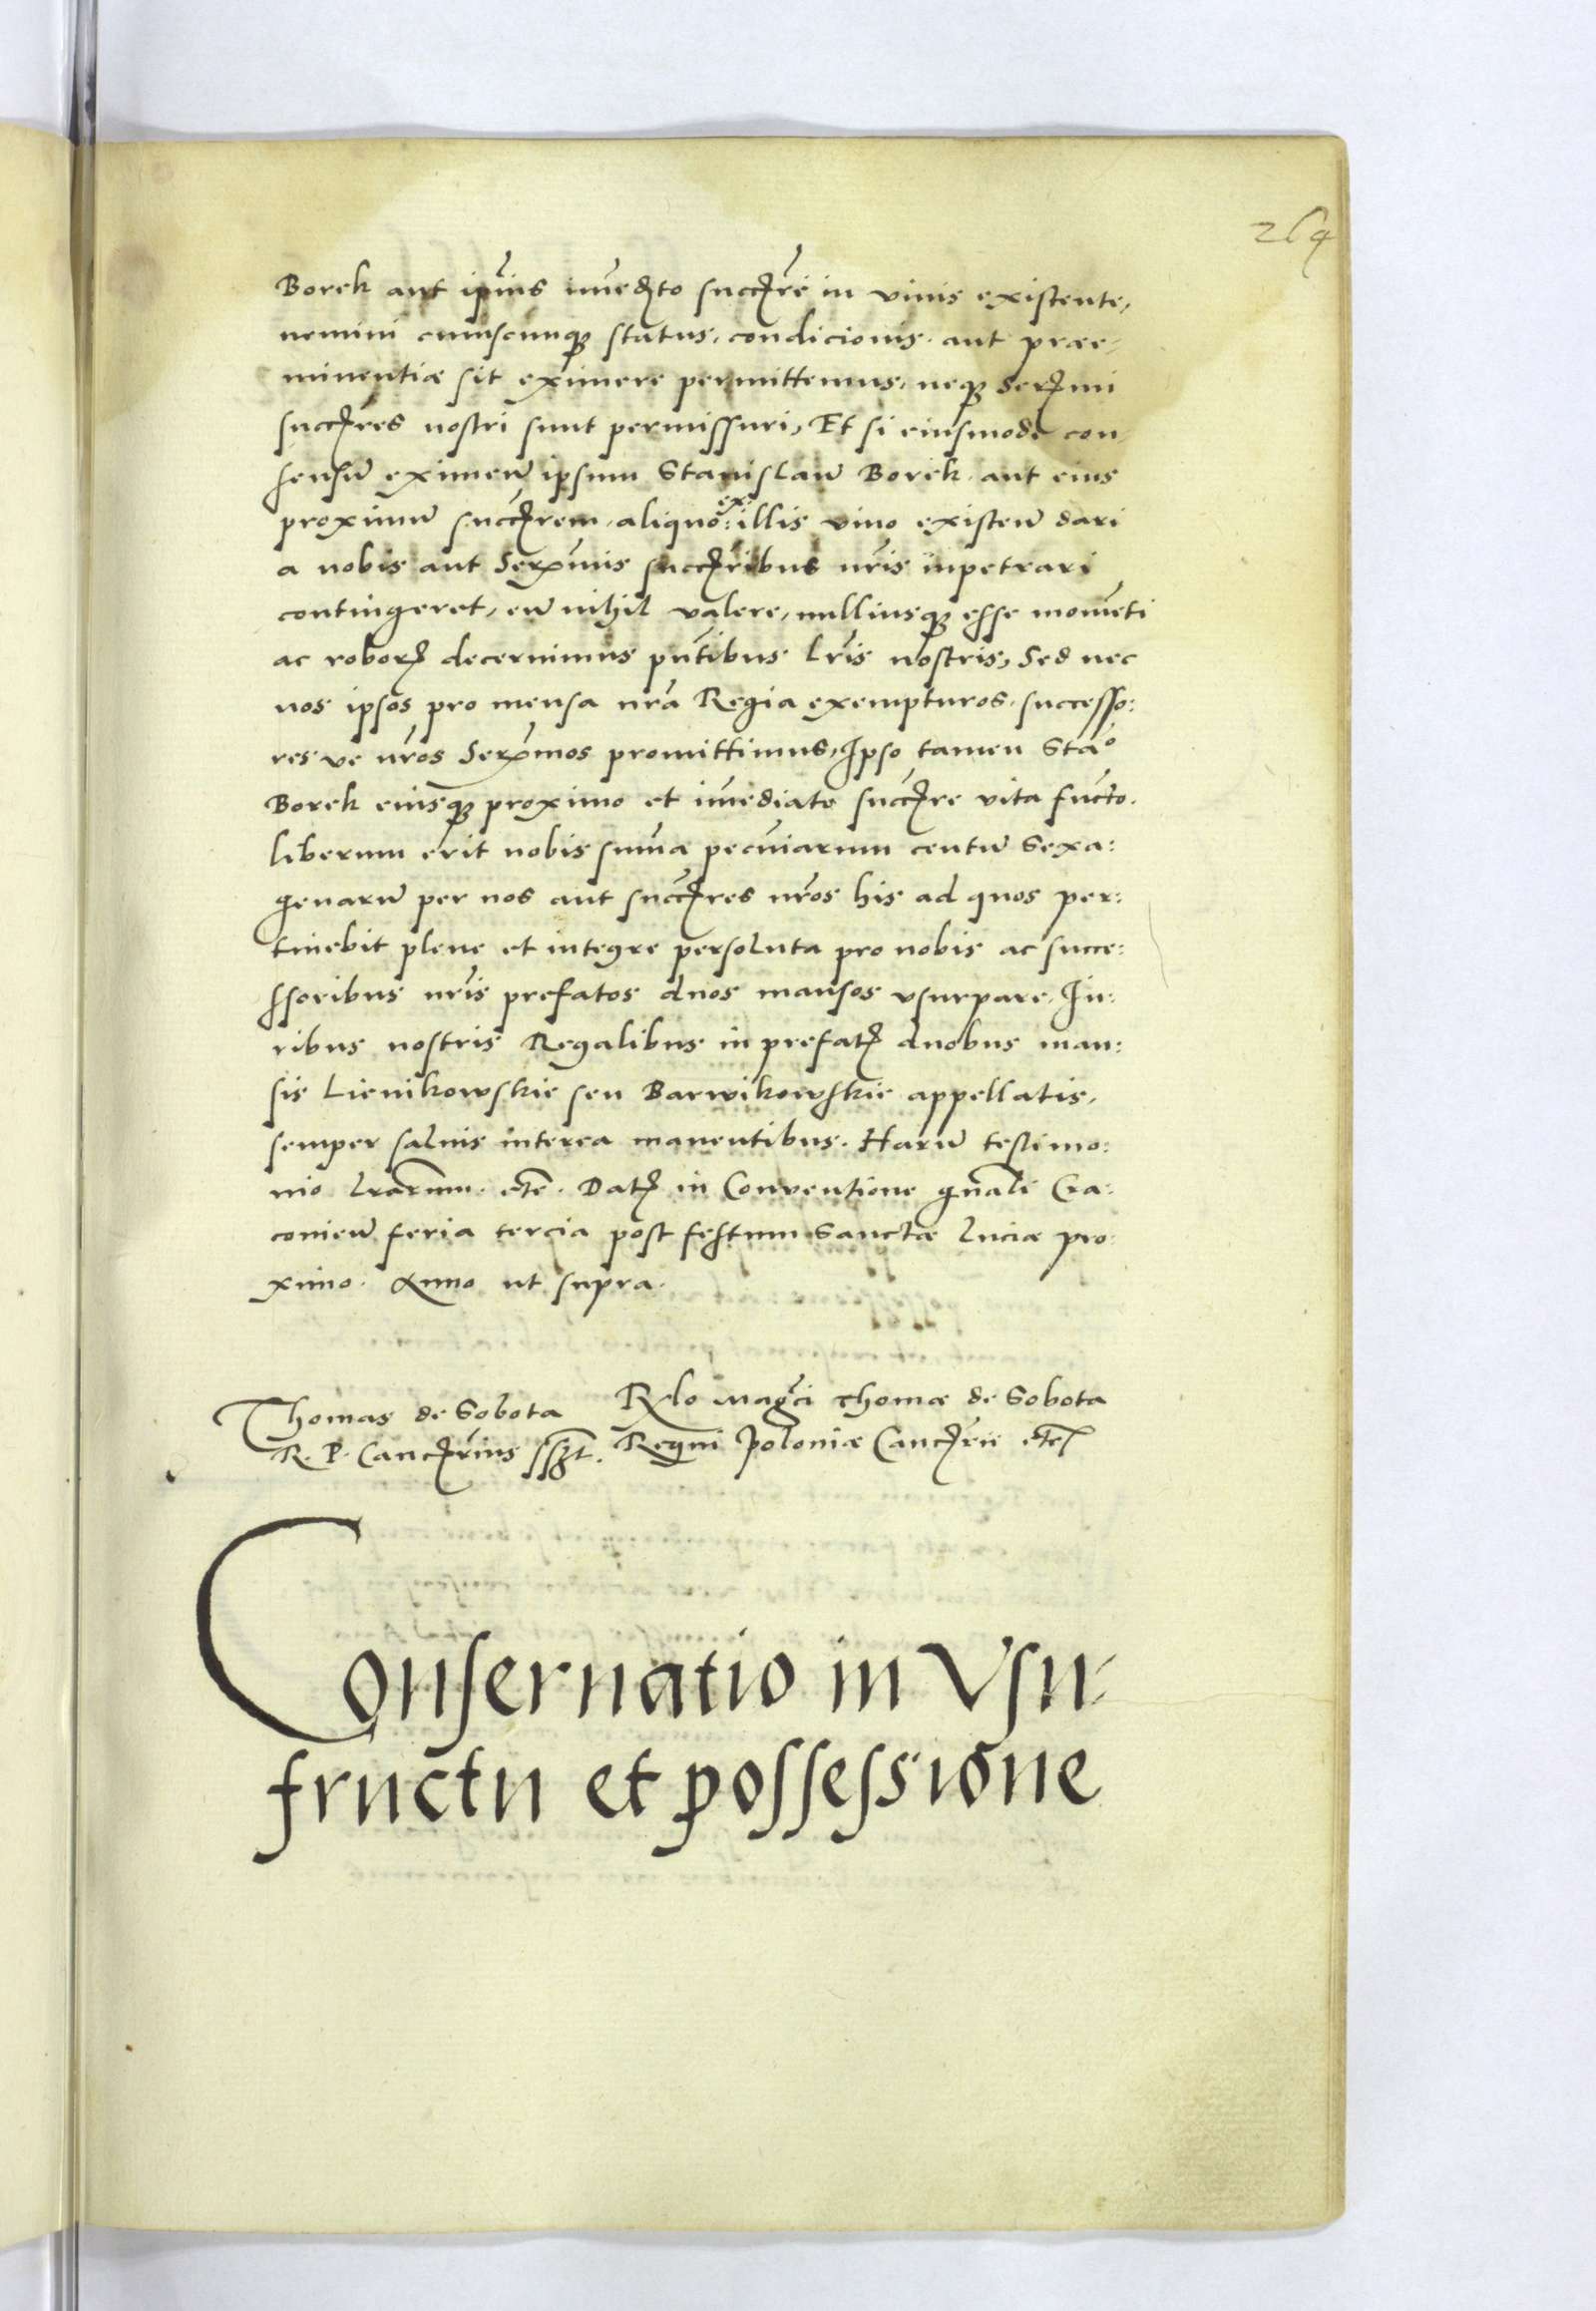 264
Borek aut ipius imediato succre in viuis existente,
nemini cuiuscunq status, condicionis aut præe-
minentiæ sit eximere permittemus, neq Sermi
succres nostri sunt permissuri, Et si eiusmodi con-
sensu eximen ipsum Stanislaum Borek aut eius
proximu succrem, aliquo ex illis viuo existen dari
a nobis aut Sermis succribus nris inpetrari
contingeret, eu nihil valere, nulliusq esse momēti
ac roboris decernimus pntibus lris nostris, Sed nec
nos ipsos pro mensa nra Regia exempturos, successo:
res ve nros Sermos promittimus, Ipso tamen Stao
Borek eiusq proximo et imediato succre vita functo.
liberum erit nobis suma pecuniarum centu Sexa:
genaru per nos aut succres nros his ad quos per:
tinebit plene et integre persoluta pro nobis ac succe:
ssoribus nris prefatos duos mansos vsurpare, Iu:
ribus nostris Regalibus in prefatis duobus man:
sis Lienikowskie seu Barwikowskie appellatis,
semper saluis interea manentibus. Haru testimo:
nio lrarum. etc. Datis in Conventione gnali Cra:
couien feria tercia post festum Sanctæ luciæ pro:
ximo. Anno ut supra.
Thomas de Sobota
R. P. Cancrius sszt.
Rlo Magci Thomæ de Sobota
Regni Poloniæ Cancrii etc
Conseruatio in Vsu-
fructu et possessione